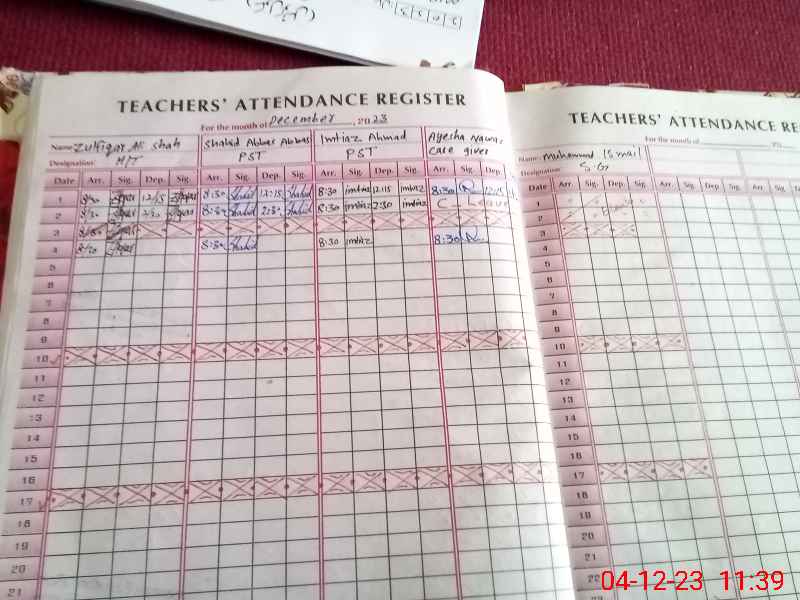 TEACHERS' ATTENDANCE REGISTER
For the month of December, 2023
Name Zulfiqar Ali shah
Shahid Abbas Abbas
Imtiaz Ahmad
Ayesha Nawaz
Designation M/T
PST
PST
care giver
Date Arr. Sig. Dep. Sig. Arr. Sig. Dep. Sig. Arr. Sig. Dep. Sig. Arr. Sig. Dep.
1 8/30 12/15 8:30 Shahid 12:15 Shahid 8:30 imtiaz 12:15 imtiaz 8:30 12:15
2 8/30 2/30 8:30 Shahid 2:30 Shahid 8:30 imtiaz 2:30 imtiaz C. Leave
3
4 8/30 8:30 Shahid 8:30 imtiaz 8:30
5
6
7
8
9
10
11
12
13
14
15
16
17
18
19
20
21
TEACHERS' ATTENDANCE RE
For the month of
Name Muhammad Ismail
Designation S.G
Date Arr. Sig. Dep. Sig. Arr. Sig. Dep. Sig. Arr. Sig.
1
2
3
4
5
6
7
8
9
10
11
12
13
14
15
16
17
18
19
20
21
22
04-12-23 11:39